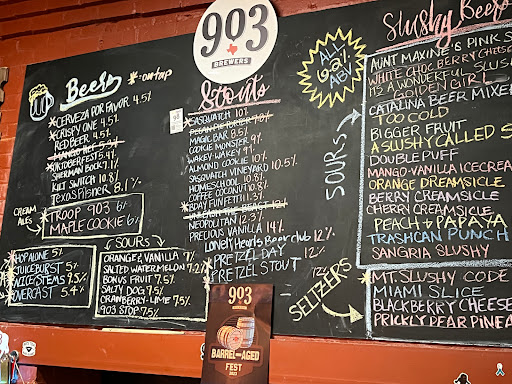 903
BREWERS
Beer
*-on tap
*CERVEZA POR FAVOR 4.5%
*CRISPY ONE 4.5%
RED BEER 4.5%
*OKTOBERFEST 5.4%
SHERMAN BOCK 7.1%
KILT SWITCH 10.8%
TEXAS Pilsner 8.1%
CREAM
ALES
*TROOP 903 6%
MAPLE COOKIE 6%
*HOPALONE 5%
*JUICEBURST 5%
*NICE/STEMS 7.5%
*OVERCAST 5.4%
SOURS
ORANGE & VANILLA 7%
SALTED WATERMELON 7.2%
BONUS FRUIT 7.5%
SALTY DOG 7.5%
CRANBERRY-LIME 7.5%
903 STOP 7.5%
Stouts
*SASQUATCH 10%
PECAN PIE PORTER 7.0%
MAGIC BAR 8.5%
COOKIE MONSTER 9%
WAKEY WAKEY 9%
ALMOND COOKIE 10%
SASQUATCH VINEYARD 10.5%
HOMESCHOOL 10.8%
COFFEE COCONUT 10.8%
*BDAY FUNFETTI 11.3%
NEOPOLITAN 12.3%
PRECIOUS VANILLA 14%
Lonely Hearts Beer club 12%
*PRETZEL DAY 12%
*PRETZEL STOUT 12%
903
BREWERS
BARREL-AGED
FEST
ALL
6.2%
ABV
Slushy Beer
SOURS
AUNT MAXINE'S PINK S
WHITE CHOC BERRY CHEESE
IT'S A WONDERFUL SLUSH
GOLDEN GIRL
CATALINA BEER MIXE
TOO COLD
BIGGER FRUIT
A SLUSHY CALLED S
DOUBLE PUFF
MANGO-VANILLA ICECREA
ORANGE DREAMSICLE
BERRY CREAMSICLE
CHERRY CREAMSICLE
PEACH & PAPAYA
TRASHCAN PUNCH
SANGRIA SLUSHY
SELTZERS
*MT. SLUSHY CODE
MIAMI SLICE
BLACKBERRY CHEESE
PRICKLY PEAR PINEA